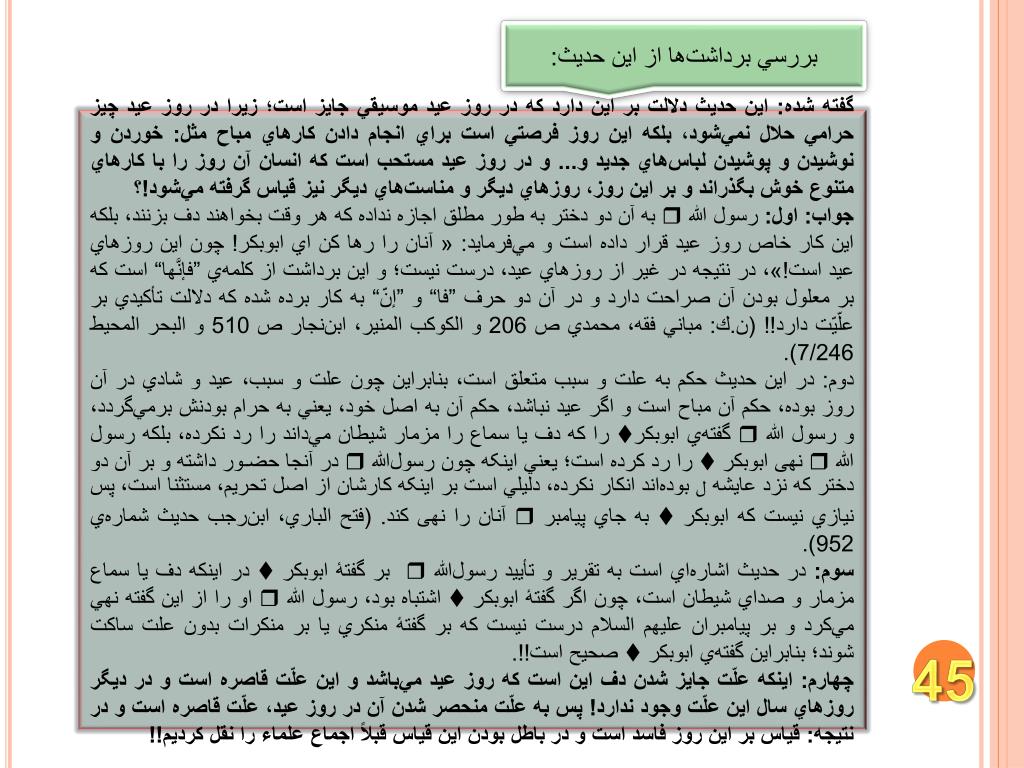 بررسي برداشت‌ها از اين حديث:
گفته شده: اين حديث دلالت بر اين دارد كه در روز عيد موسيقي جايز است؛ زيرا در روز عيد چيز
حرامي حلال نمي‌شود، بلكه اين روز فرصتي است براي انجام دادن كارهاي مباح مثل: خوردن و
نوشيدن و پوشيدن لباس‌هاي جديد و... و در روز عيد مستحب است كه انسان آن روز را با كارهاي
متنوع خوش بگذراند و بر اين روز، روزهاي ديگر و مناست‌هاي ديگر نيز قياس گرفته مي‌شود!؟
جواب: اول: رسول الله ❒ به آن دو دختر به طور مطلق اجازه نداده كه هر وقت بخواهند دف بزنند، بلكه
اين كار خاص روز عيد قرار داده است و مي‌فرمايد: « آنان را رها كن اي ابوبكر! چون اين روزهاي
عيد است!»، در نتيجه در غير از روزهاي عيد، درست نيست؛ و اين برداشت از كلمه‌ي ”فإنَّها“ است كه
بر معلول بودن آن صراحت دارد و در آن دو حرف ”فا“ و ”إنّ“ به كار برده شده كه دلالت تأكيدي بر
علّيّت دارد!! (ن.ك: مباني فقه، محمدي ص 206 و الكوكب المنير، ابن‌نجار ص 510 و البحر المحيط
7/246).
دوم: در اين حديث حكم به علت و سبب متعلق است، بنابراين چون علت و سبب، عيد و شادي در آن
روز بوده، حكم آن مباح است و اگر عيد نباشد، حكم آن به اصل خود، يعني به حرام بودنش برمي‌گردد،
و رسول الله ❒ گفته‌ي ابوبكر♦ را كه دف يا سماع را مزمار شيطان مي‌داند را رد نكرده، بلكه رسول
الله ❒ نهى ابوبكر ♦ را رد كرده است؛ يعني اينكه چون رسول‌الله ❒ در آنجا حضـور داشته و بر آن دو
دختر كه نزد عايشه ل بوده‌اند انكار نكرده، دليلي است بر اينكه كارشان از اصل تحريم، مستثنا است، پس
نيازي نيست كه ابوبكر ♦ به جاي پيامبر ❒ آنان را نهى كند. (فتح الباري، ابن‌رجب حديث شماره‌ي
952).
سوم: در حديث اشاره‌اي است به تقرير و تأييد رسول‌الله ❒ بر گفتهٔ ابوبكر ♦ در اينكه دف يا سماع
مزمار و صداي شيطان است، چون اگر گفتهٔ ابوبكر ♦ اشتباه بود، رسول الله ❒ او را از اين گفته نهي
مي‌كرد و بر پيامبران عليهم السلام درست نيست كه بر گفتهٔ منكري يا بر منكرات بدون علت ساكت
شوند؛ بنابراين گفته‌ي ابوبكر ♦ صحيح است!!.
چهارم: اينكه علّت جايز شدن دف اين است كه روز عيد مي‌باشد و اين علّت قاصره است و در ديگر
روزهاي سال اين علّت وجود ندارد! پس به علّت منحصر شدن آن در روز عيد، علّت قاصره است و در
نتيجه: قياس بر اين روز فاسد است و در باطل بودن اين قياس قبلاً اجماع علماء را نقل كرديم!!
45